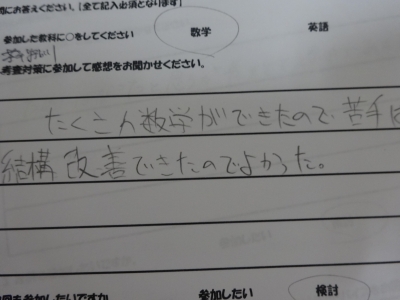 にお答えください。【全て記入必須となります】
参加した教科に○をしてください 数学 英語
考査対策に参加して感想をお聞かせください。
たくさん数学ができたので苦手は
結構改善できたのでよかった。
を参加したいですか 参加したい 検討